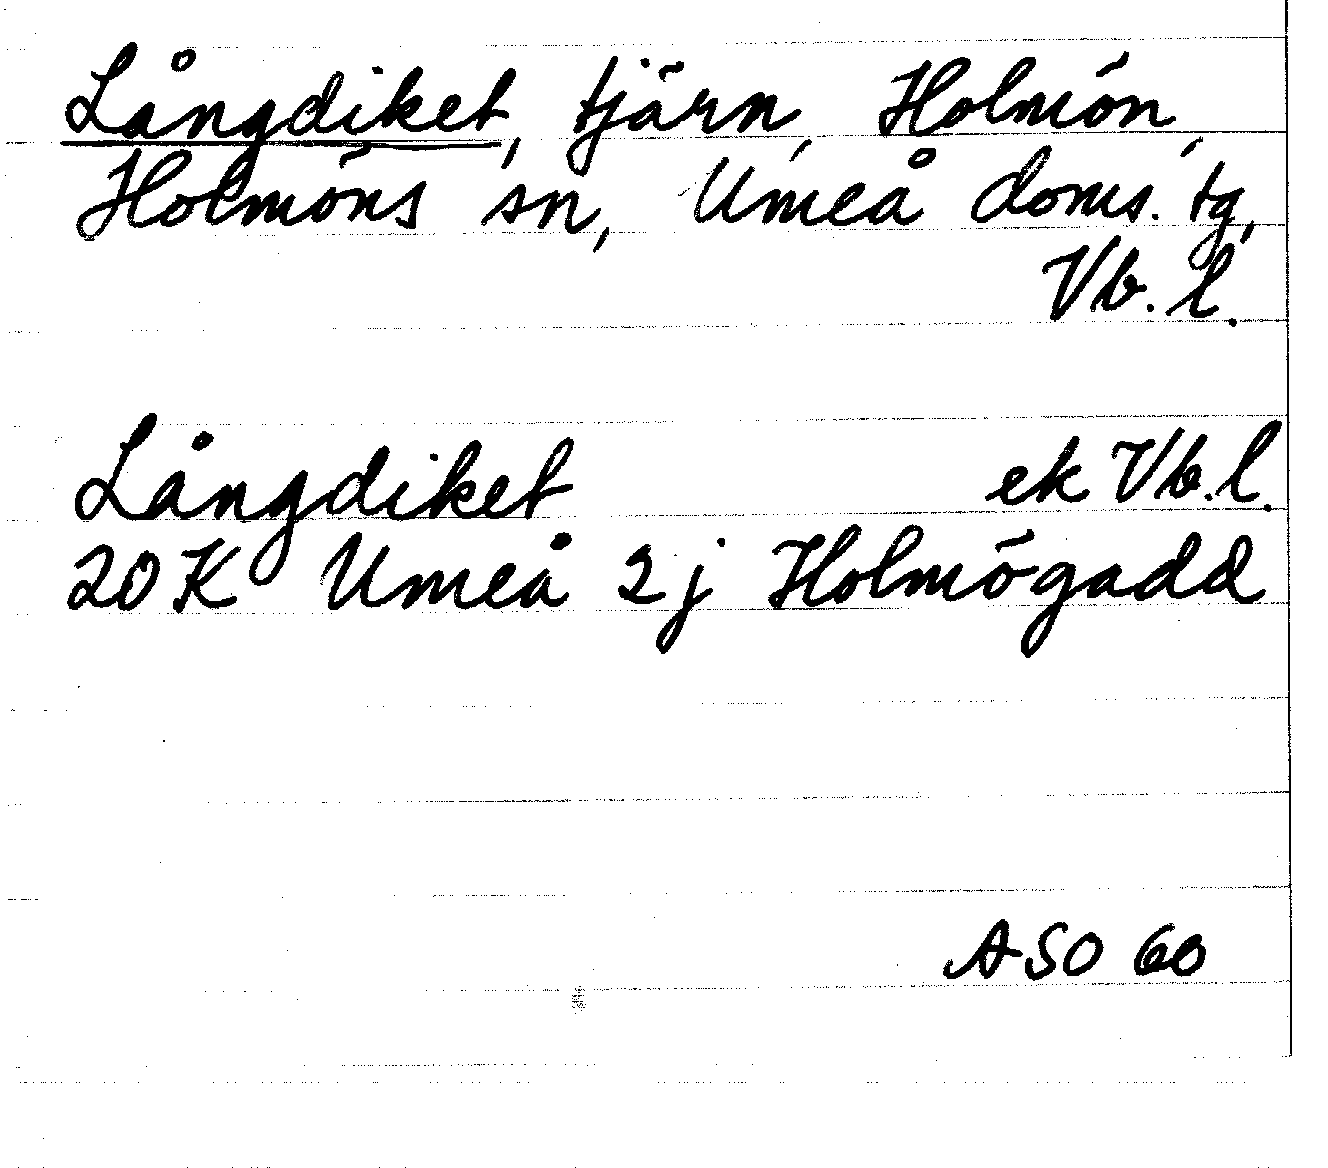 Långdiket, tjärn, Holmön,
Holmöns sn, Umeå doms. tg,
Vb. l.
Långdiket ek Vb. l.
20K Umeå 2j Holmögadd
ASO 60